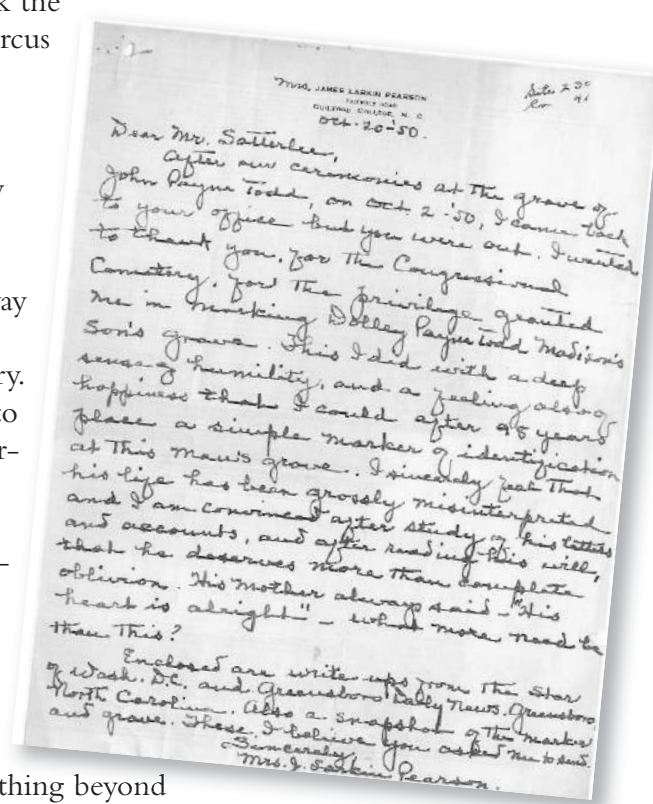 k the
rcus
y
vay
ry.
to
r–
–
thing beyond
Mrs. JAMES LARKIN PEARSON
GUILFORD COLLEGE, N. C.
Oct- 20-'50.
Site 230
Dear Mr. Satterlee,
After our ceremonies at the grave of
John Payne Todd, on Oct. 2-'50, I came back
to your office but you were out. I wanted
to thank you, for the Congressional
Cemetery, for the privilege granted
me in marking Dolley Payne Todd Madison's
Son's grave. This I did with a deep
sense of humility, and a feeling also of
happiness that I could after 98 years
place a simple marker of identification
at this man's grave.. I sincerely feel that
his life has been grossly misinterpreted
and I am convinced after study of his letters
and accounts, and after reading his will,
that he deserves more than complete
oblivion. His Mother always said - "His
heart is alright" - what more need be
than this?
Enclosed are write ups from The Star
of Wash. D.C. and Greensboro Daily News. Greensboro
North Carolina. Also a snapshot of the marker
and grave. These I believe you asked me to send.
Sincerely
Mrs. J. Larkin Pearson.